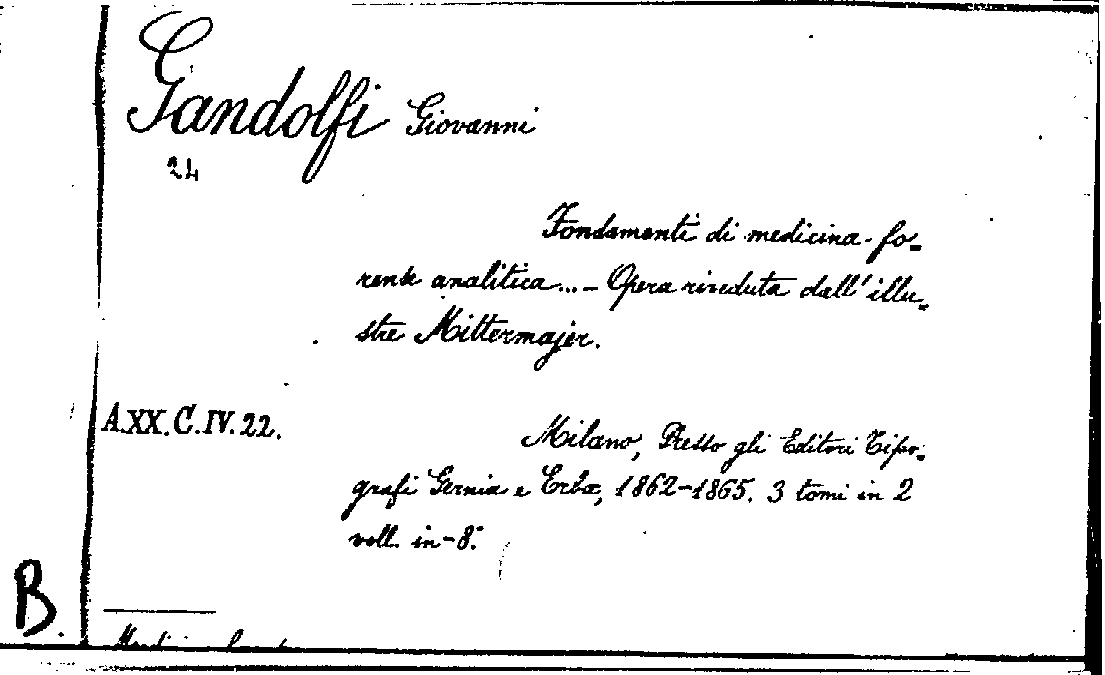 Gandolfi Giovanni
24
Fondamenti di medicina fo-
rense analitica... - Opera riveduta dall'illu-
stre Mittermajer.
A.XX.C.IV.22.
Milano, Presso gli Editori Tipo-
grafi Gernia e Erba, 1862-1865. 3 tomi in 2
voll. in-8.°
B.